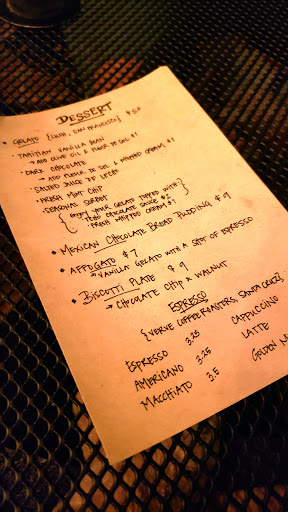 DESSERT
• GELATO {LUSH, SAN FRANCISCO} $5.5
• TAHITIAN VANILLA BEAN
→ ADD OLIVE OIL & FLEUR DE SEL $1
• DARK CHOCOLATE
→ ADD FLEUR DE SEL & WHIPPED CREAM $1
• SALTED DULCE DE LECHE
• FRESH MINT CHIP
• SEASONAL SORBET
{ ENJOY YOUR GELATO TOPPED WITH }
CHOCOLATE SAUCE $2
FRESH WHIPPED CREAM $1
• MEXICAN CHOCOLATE BREAD PUDDING $9
• AFFOGATO $7
→ VANILLA GELATO WITH A SHOT OF ESPRESSO
• BISCOTTI PLATE $9
→ CHOCOLATE CHIP & WALNUT
ESPRESSO
{VERVE COFFEE ROASTERS, SANTA CRUZ}
ESPRESSO 3.25 CAPPUCCINO
AMERICANO 3.25 LATTE
MACCHIATO 3.5 GOLDEN M